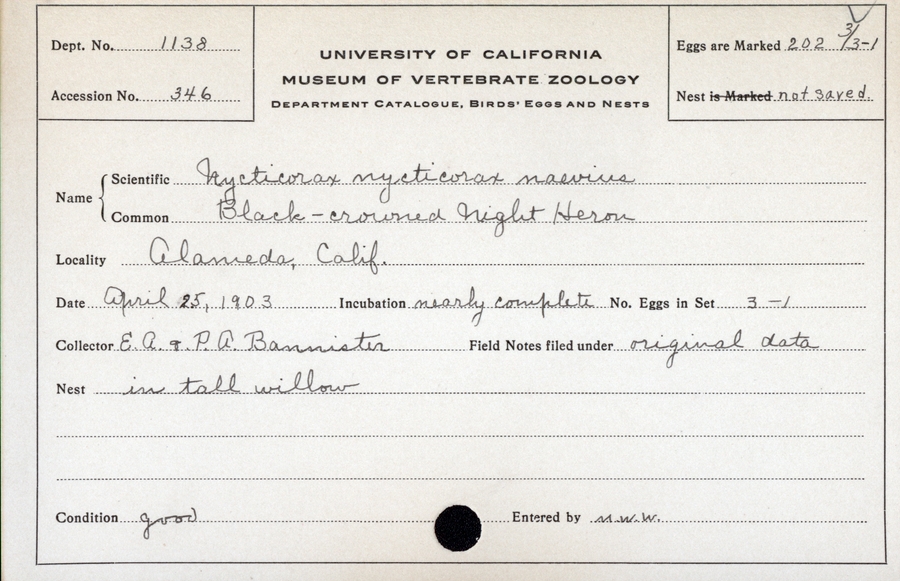 Dept. No. 1138
Accession No. 346
UNIVERSITY OF CALIFORNIA
MUSEUM OF VERTEBRATE ZOOLOGY
DEPARTMENT CATALOGUE, BIRDS' EGGS AND NESTS
Eggs are Marked 202 3/3-1
Nest is Marked not saved.
Name
Scientific Nycticorax nycticorax naevius
Common Black-crowned Night Heron
Locality Alameda, Calif.
Date April 25, 1903 Incubation nearly complete No. Eggs in Set 3-1
Collector E.A. & P.A. Bannister Field Notes filed under original data
Nest in tall willow
Condition good Entered by M.W.W.